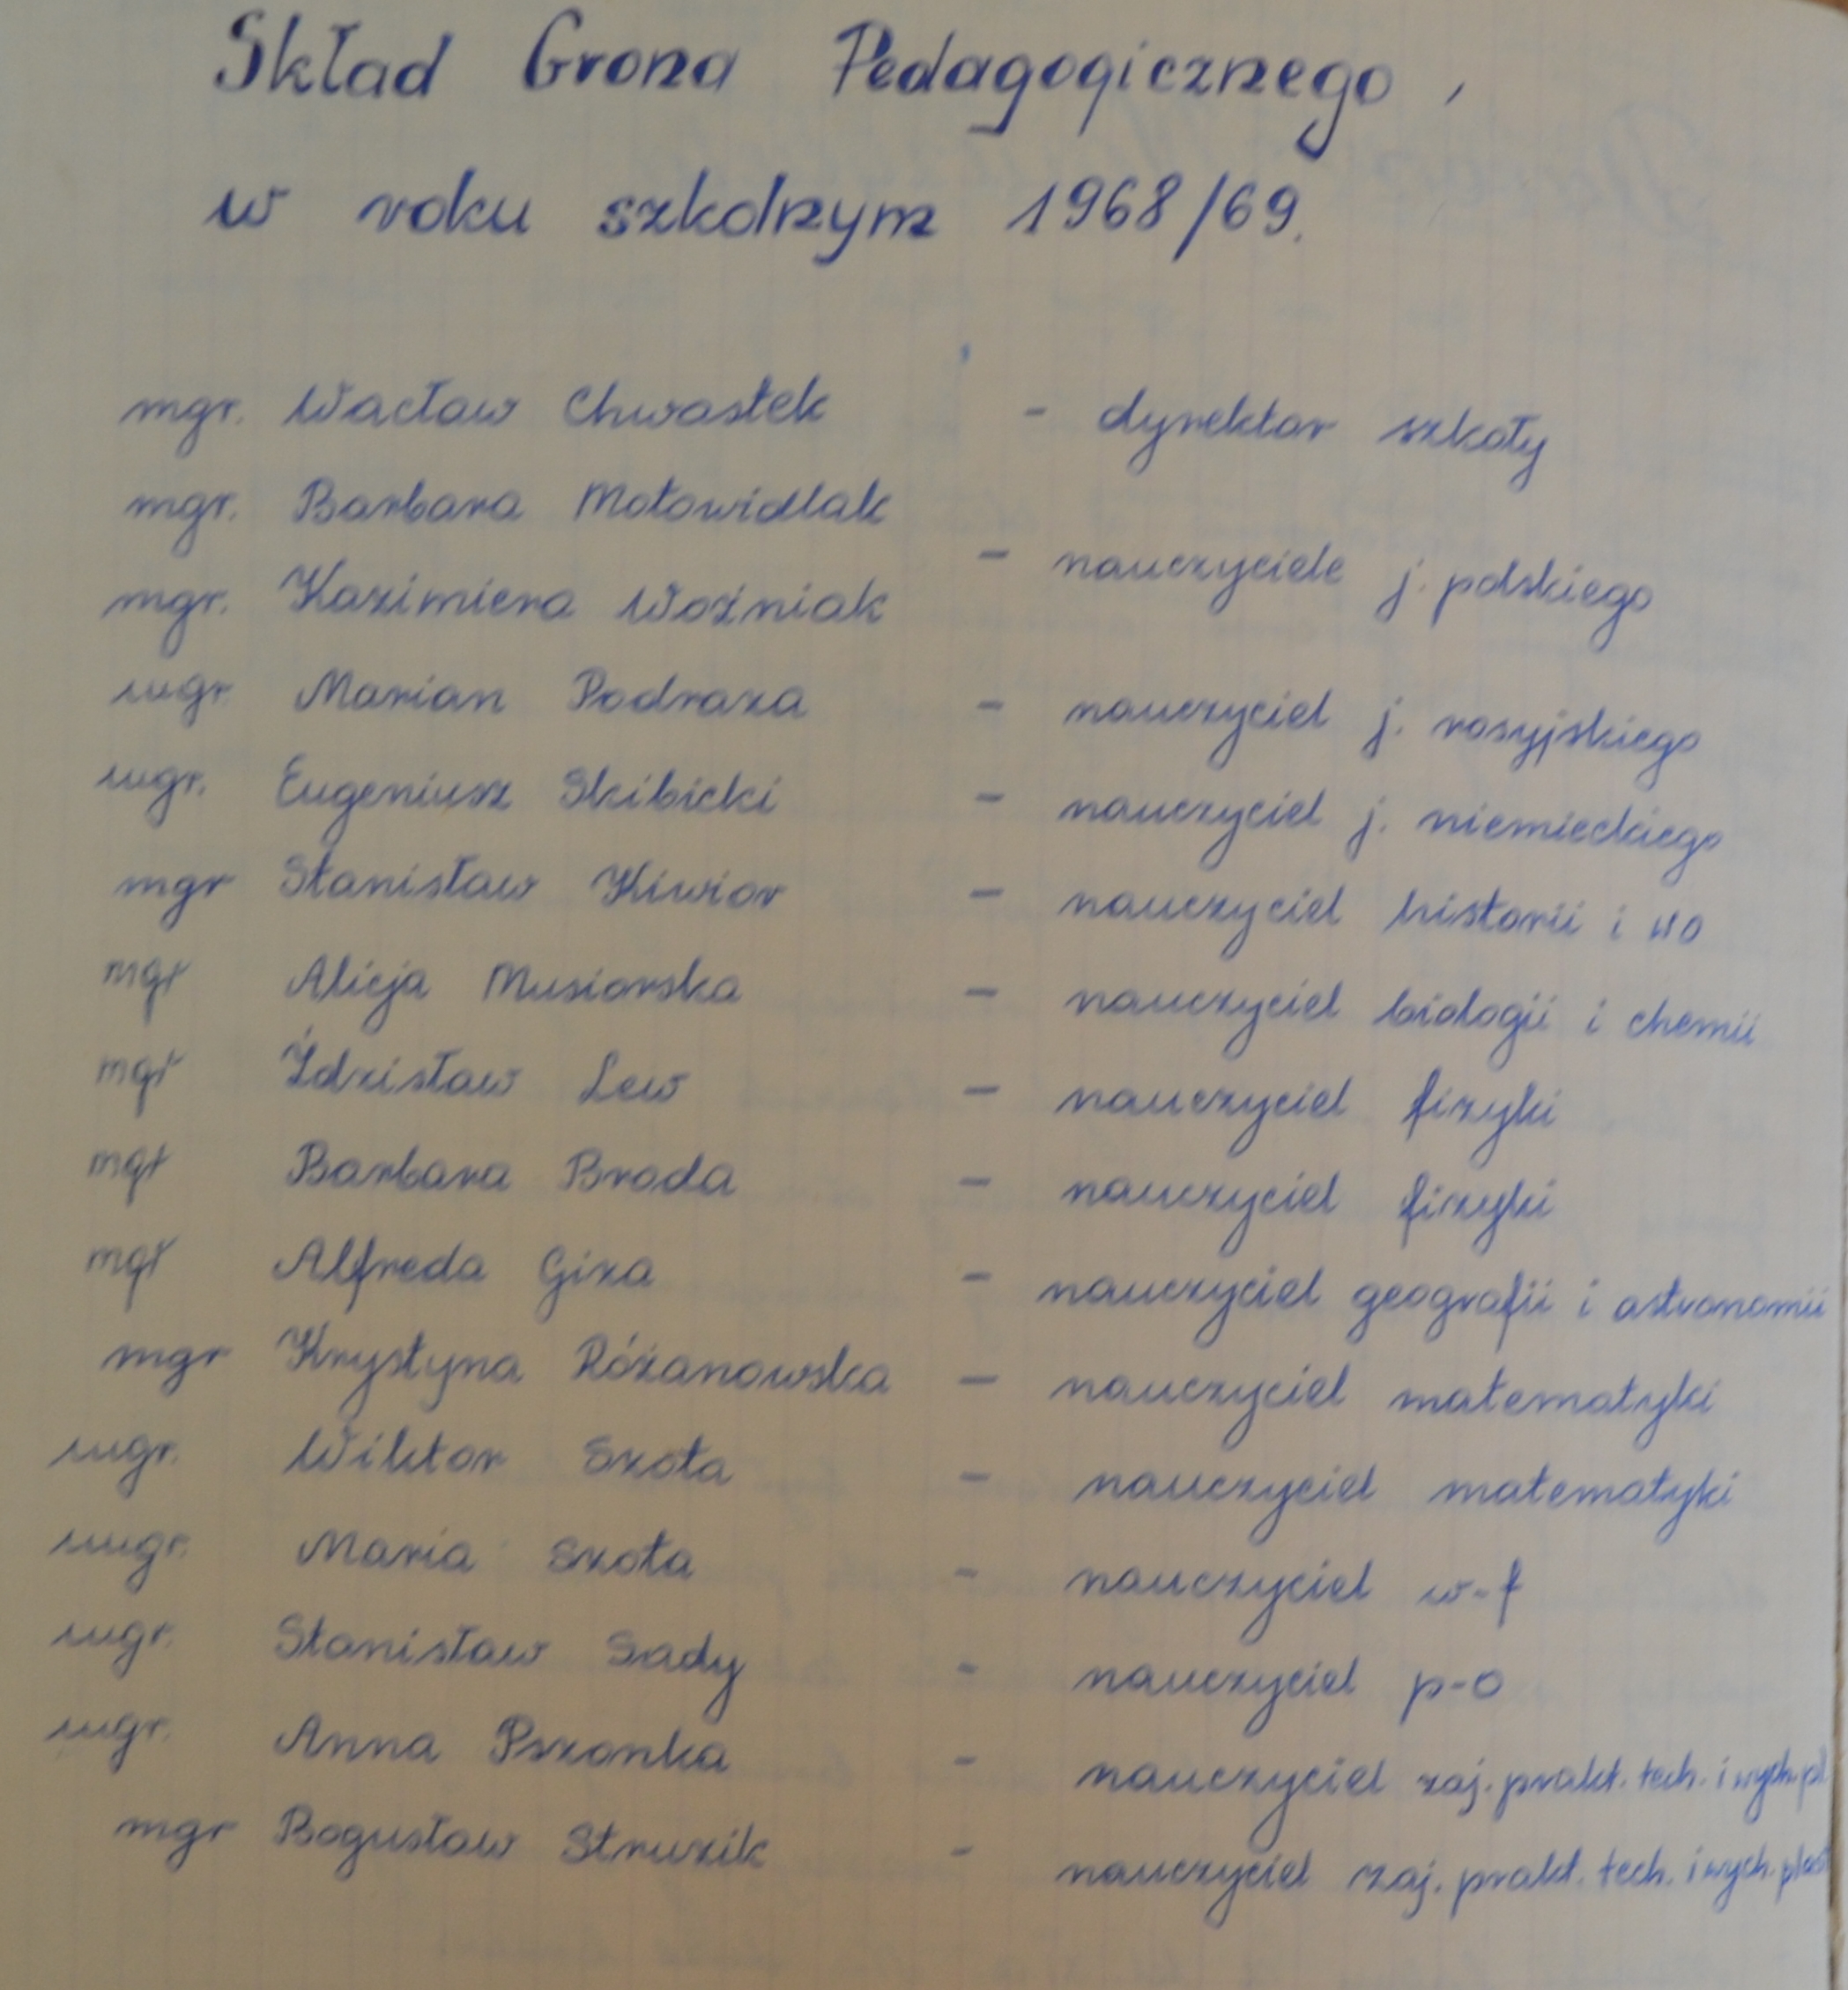 Skład Grona Pedagogicznego,
w roku szkolnym 1968/69.
mgr. Wacław Chwastek - dyrektor szkoły
mgr. Barbara Motowidlak
- nauczyciele j. polskiego
mgr. Kazimiera Woźniak
mgr. Marian Podraza - nauczyciel j. rosyjskiego
mgr. Eugeniusz Skibicki - nauczyciel j. niemieckiego
mgr Stanisław Kiwior - nauczyciel historii i wo
mgr Alicja Musiorska - nauczyciel biologii i chemii
mgr Zdzisław Lew - nauczyciel fizyki
mgr Barbara Broda - nauczyciel fizyki
mgr Alfreda Giza - nauczyciel geografii i astronomii
mgr Krystyna Różanowska - nauczyciel matematyki
mgr. Wiktor Szota - nauczyciel matematyki
mgr. Maria Szota - nauczyciel w-f
mgr. Stanisław Sady - nauczyciel p-o
mgr. Anna Pszonka - nauczyciel zaj. prakt. tech. i wych. pl
mgr Bogusław Struzik - nauczyciel zaj. prakt. tech. i wych. plast